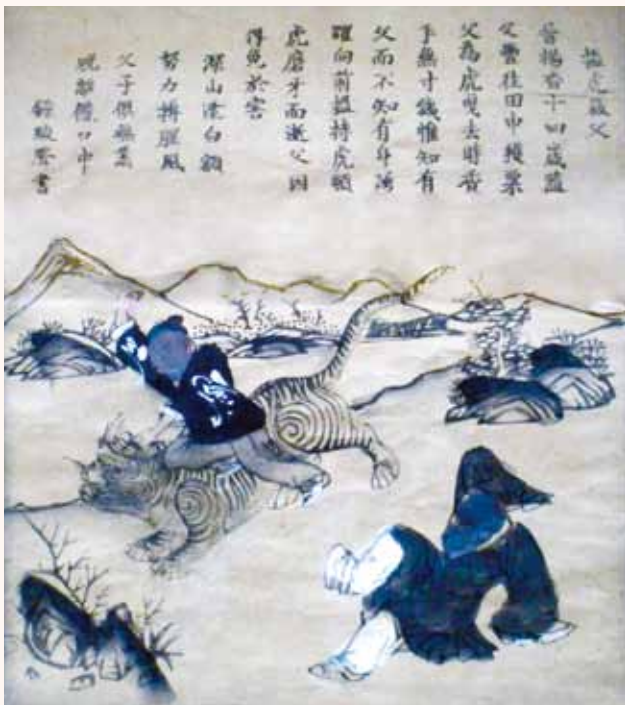 搤虎救父
晉楊香十四歲隨
父豐往田中獲粟
父為虎曳去時香
手無寸鐵惟知有
父而不知有身踴
躍向前搤持虎頸
虎磨牙而逝父因
得免於害
深山逢白額
努力搏腥風
父子俱無恙
脫離饞口中
書